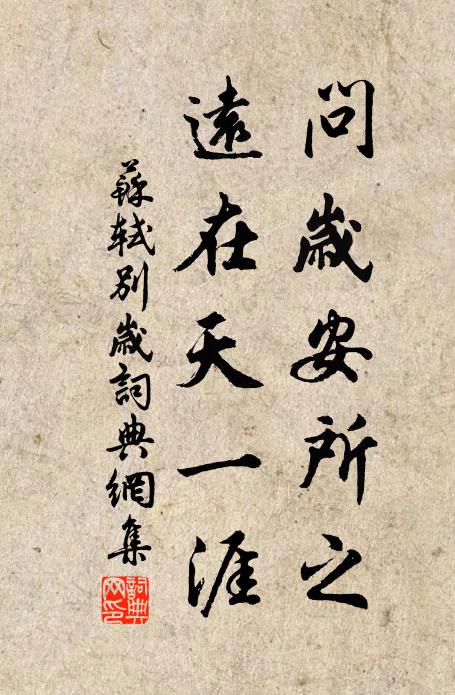 問歲安所之
遠在天一涯
蘇軾別歲詞典網集
詞典网印